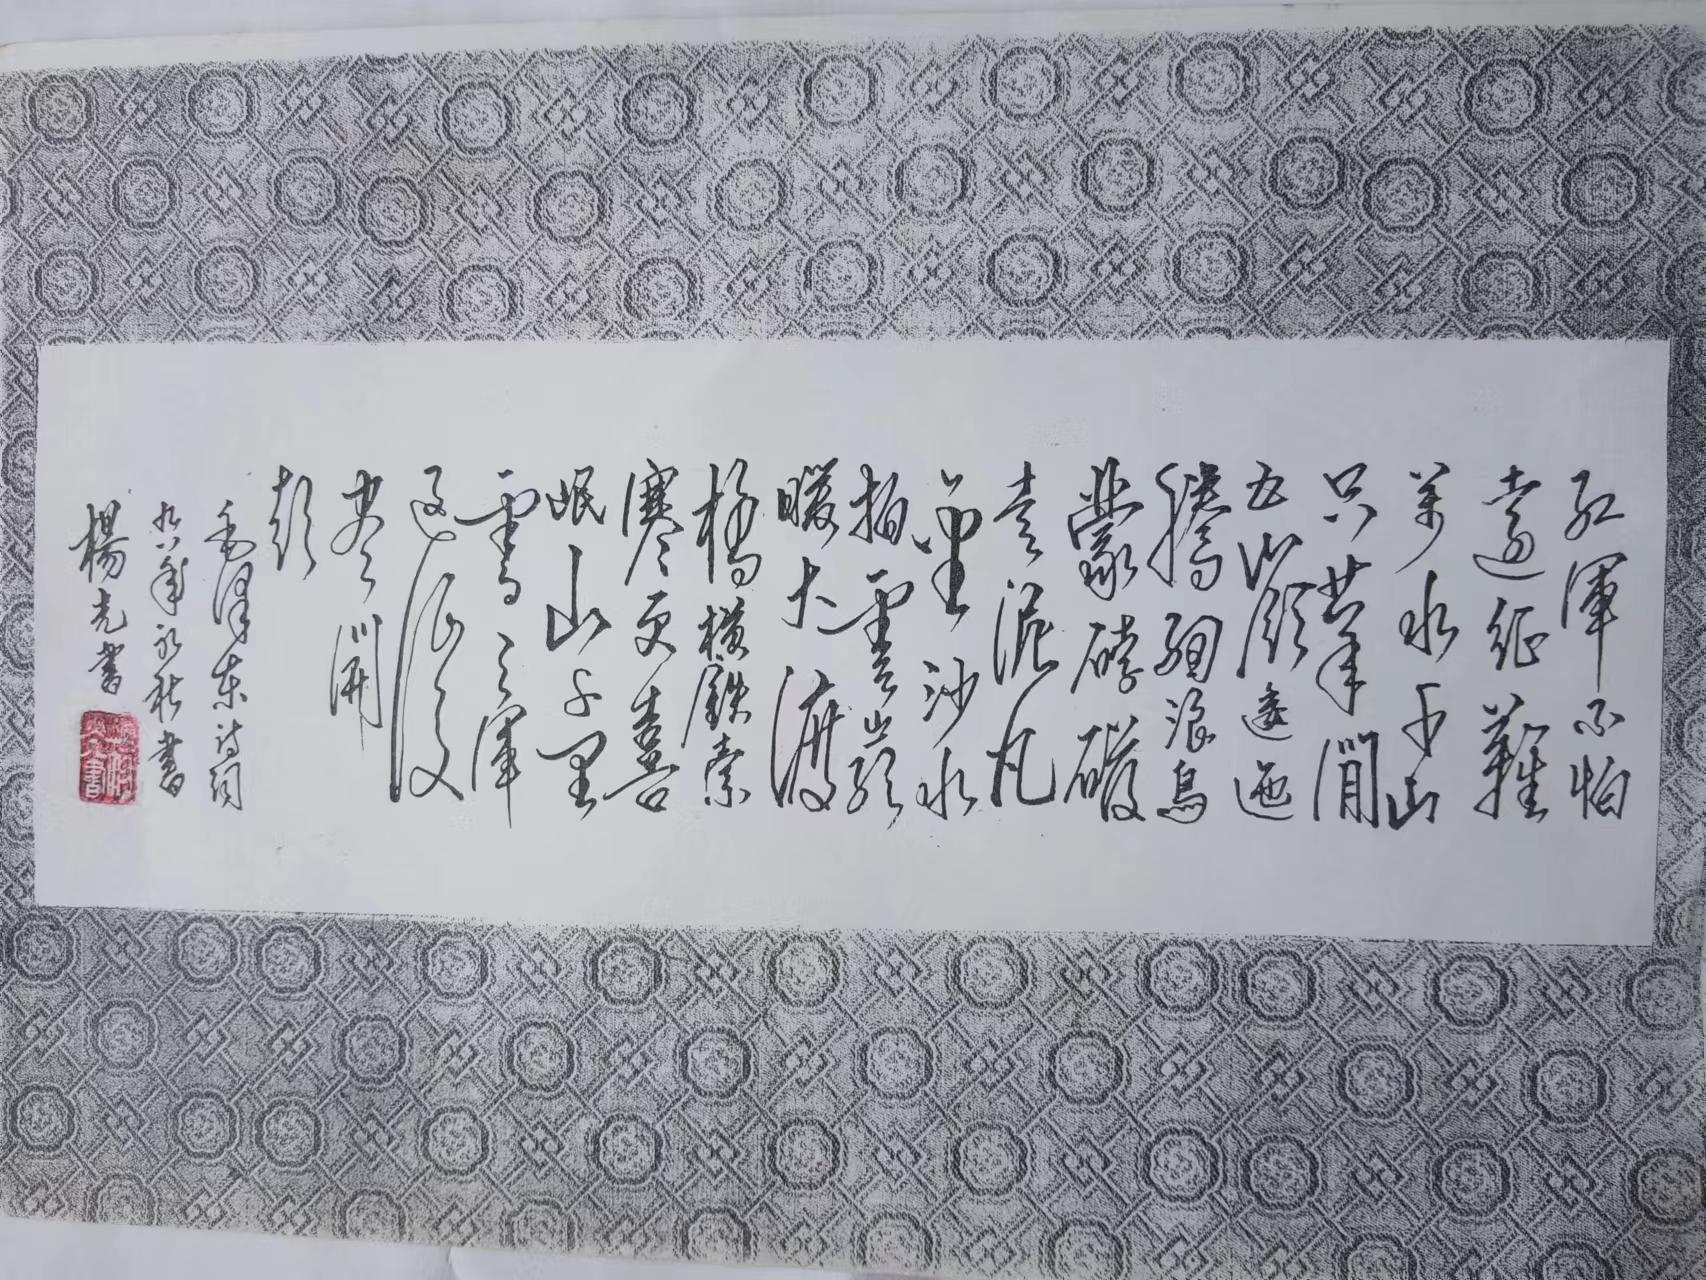 紅軍不怕
遠征難
萬水千山
只等閒
五嶺逶迤
騰細浪烏
蒙磅礴
走泥丸
金沙水
拍雲崖
暖大渡
橋橫鐵索
寒更喜
岷山千里
雪三軍
過後
盡開
顏
毛澤東詩詞
九八年初秋書
楊光書